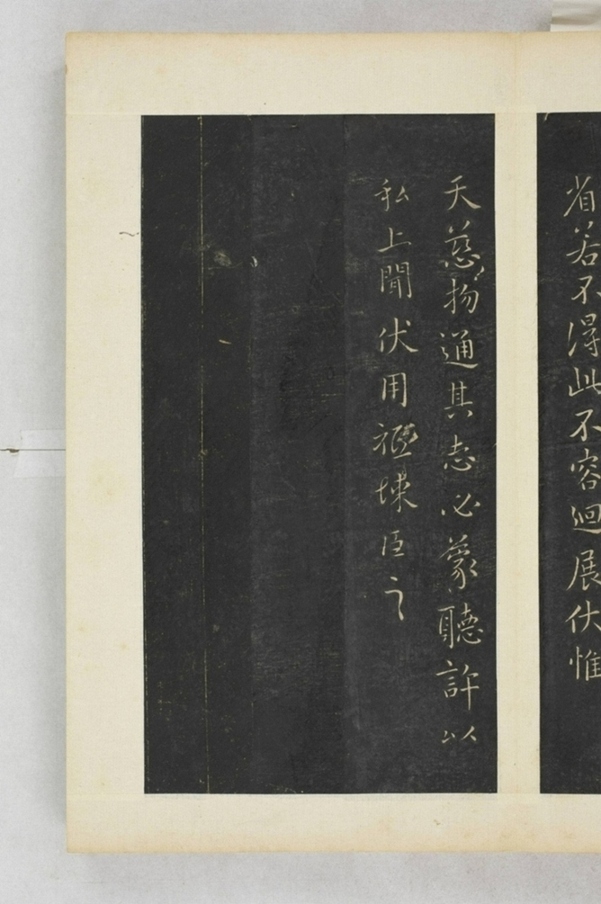 省若不得此不容迴展伏惟
天慈物通其志必蒙聽許以
私上聞伏用臣之